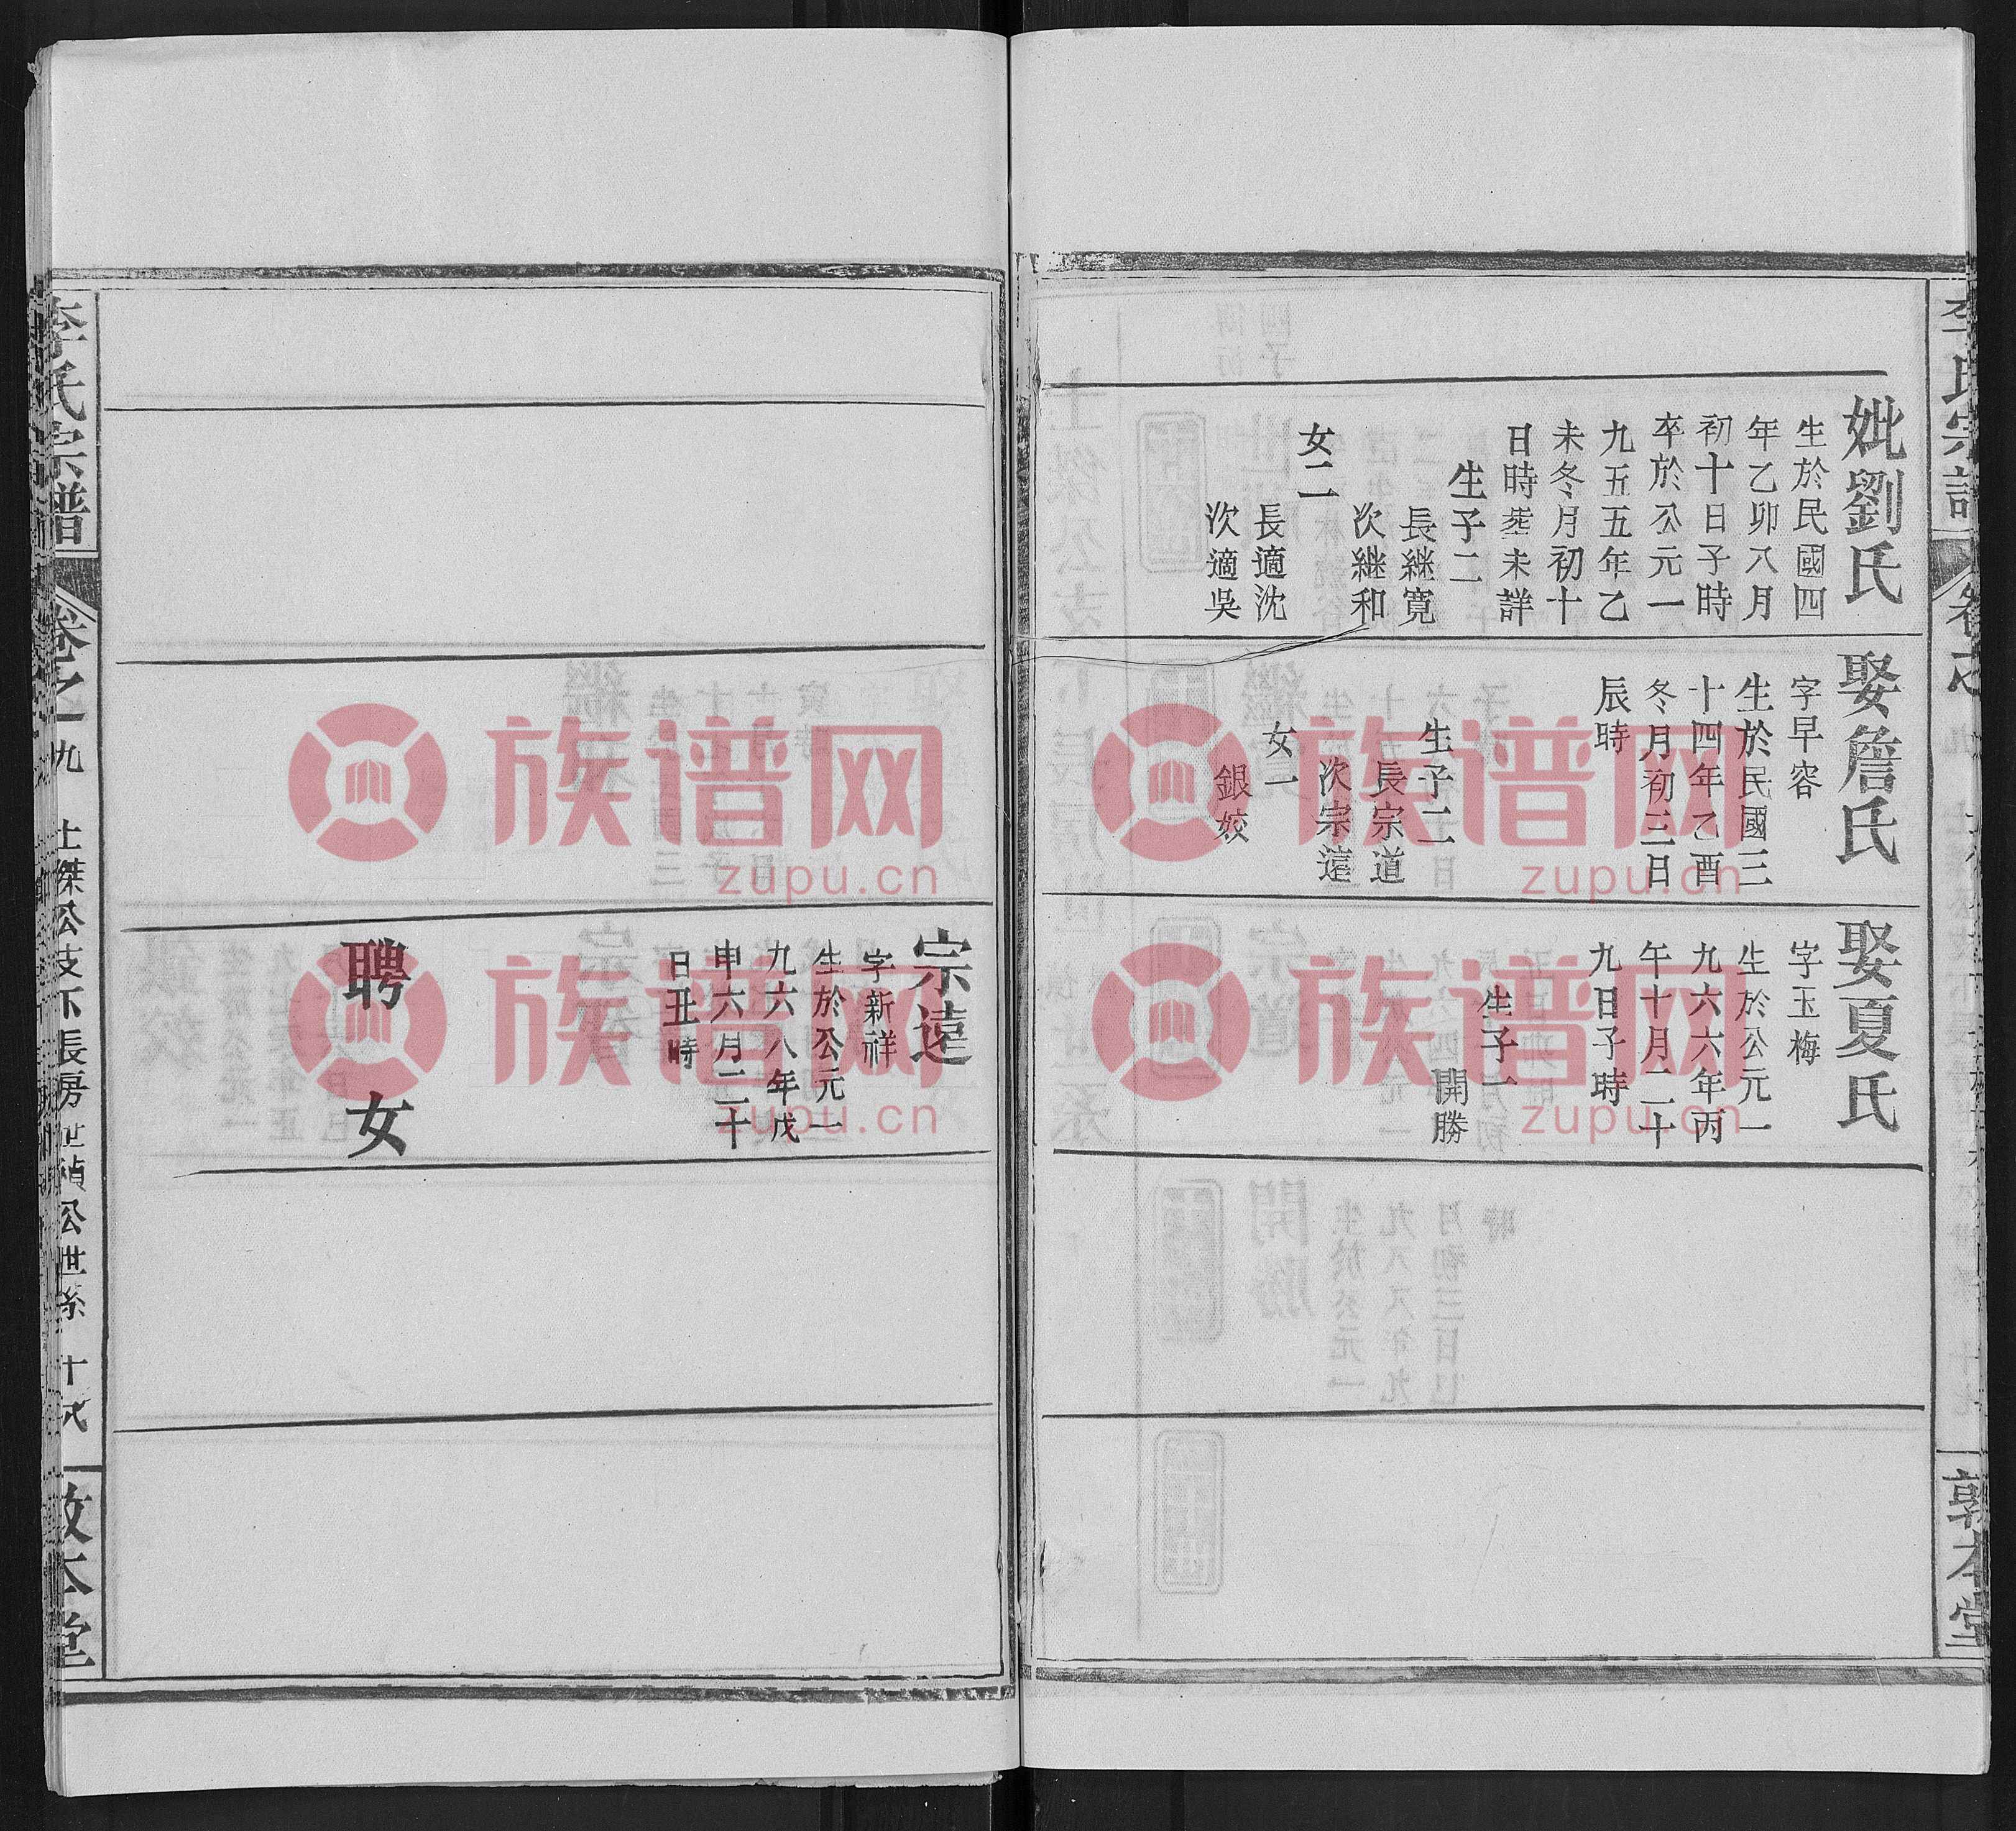 妣劉氏
生於民國四
年乙卯八月
初十日子時
卒於公元一
九五五年乙
未冬月初十
日時塟未詳
生子二
長継寬
次継和
女二
長適沈
次適吳
娶詹氏
字早容
生於民國三
十四年乙酉
冬月初三日
辰時
生子二
長宗道
次宗遠
女一
銀姣
娶夏氏
字玉梅
生於公元一
九六六年丙
午十月二十
九日子時
生子一
開勝
敦本堂
宗遠
字新祥
生於公元一
九六八年戊
申六月二十
日丑時
聘
女
李氏宗譜
卷之一
九
士傑公支下長房世禎公世系
敦本堂
族谱网
zupu.cn
族谱网
zupu.cn
族谱网
zupu.cn
族谱网
zupu.cn